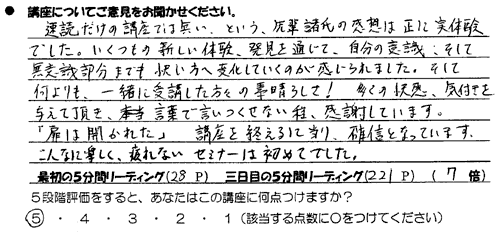 ● 講座についてご意見をお聞かせください。
速読だけの講座では無い、という、先輩諸氏の感想は正に実体験
でした。いくつもの新しい体験、発見を通じて、自分の意識、そして
無意識部分までも快い方へ変化していくのが感じられました。そして
何よりも、一緒に受講した方々の事晴らしさ! 多くの快感、気付きを
与えて頂き、本当 言葉で言いつくせない程、感謝しています。
「扉は開かれた」 講座を終えるに当り、確信となっています。
こんなに楽しく、疲れない セミナーは初めてでした。
最初の5分間リーディング(28 P) 三日目の5分間リーディング(221 P) ( 7 倍)
5段階評価をすると、あなたはこの講座に何点つけますか?
⑤ ・ 4 ・ 3 ・ 2 ・ 1 (該当する点数に○をつけてください)